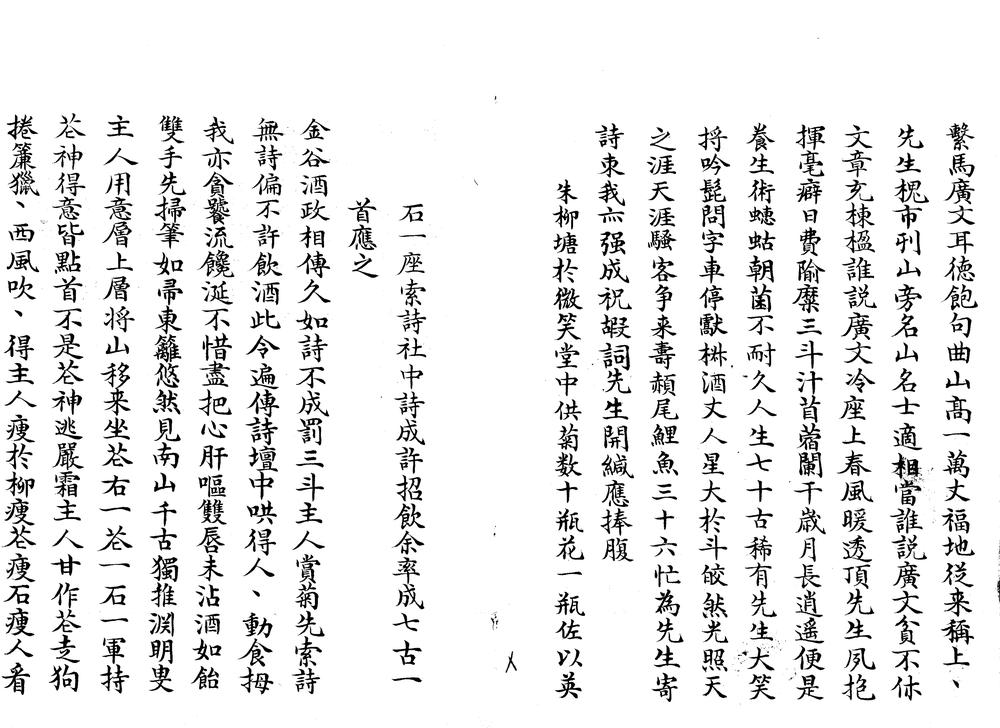 繫馬廣文耳德飽句曲山高一萬丈福地従来稱上、
先生槐市刋山旁名山名士適相當誰説廣文貧不休
文章充棟楹誰説廣文冷座上春風暖透頂先生夙抱
揮毫癖日費隃糜三斗汁首蓿闌干歳月長逍遥便是
養生術蟪蛄朝菌不耐久人生七十古稀有先生大笑
捋吟髭問字車停獻楙酒丈人星大於斗皎然光照天
之涯天涯騷客争来壽赬尾鯉魚三十六忙為先生寄
詩柬我亦强成祝嘏詞先生開緘應捧腹
朱柳塘於微笑堂中供菊数十瓶花一瓶佐以英
石一座索詩社中詩成許招飲余率成七古一
首應之
金谷酒政相傳久如詩不成罰三斗主人賞菊先索詩
無詩偏不許飲酒此令遍傳詩壇中哄得人、動食拇
我亦貪饕流饞涎不惜盡把心肝嘔雙唇未沾酒如飴
雙手先掃筆如帚東籬悠然見南山千古獨推淵明叟
主人用意層上層将山移来坐苍右一苍一石一軍持
苍神得意皆點首不是苍神逃嚴霜主人甘作苍走狗
捲簾獵、西風吹、得主人瘦於柳瘦苍瘦石瘦人看